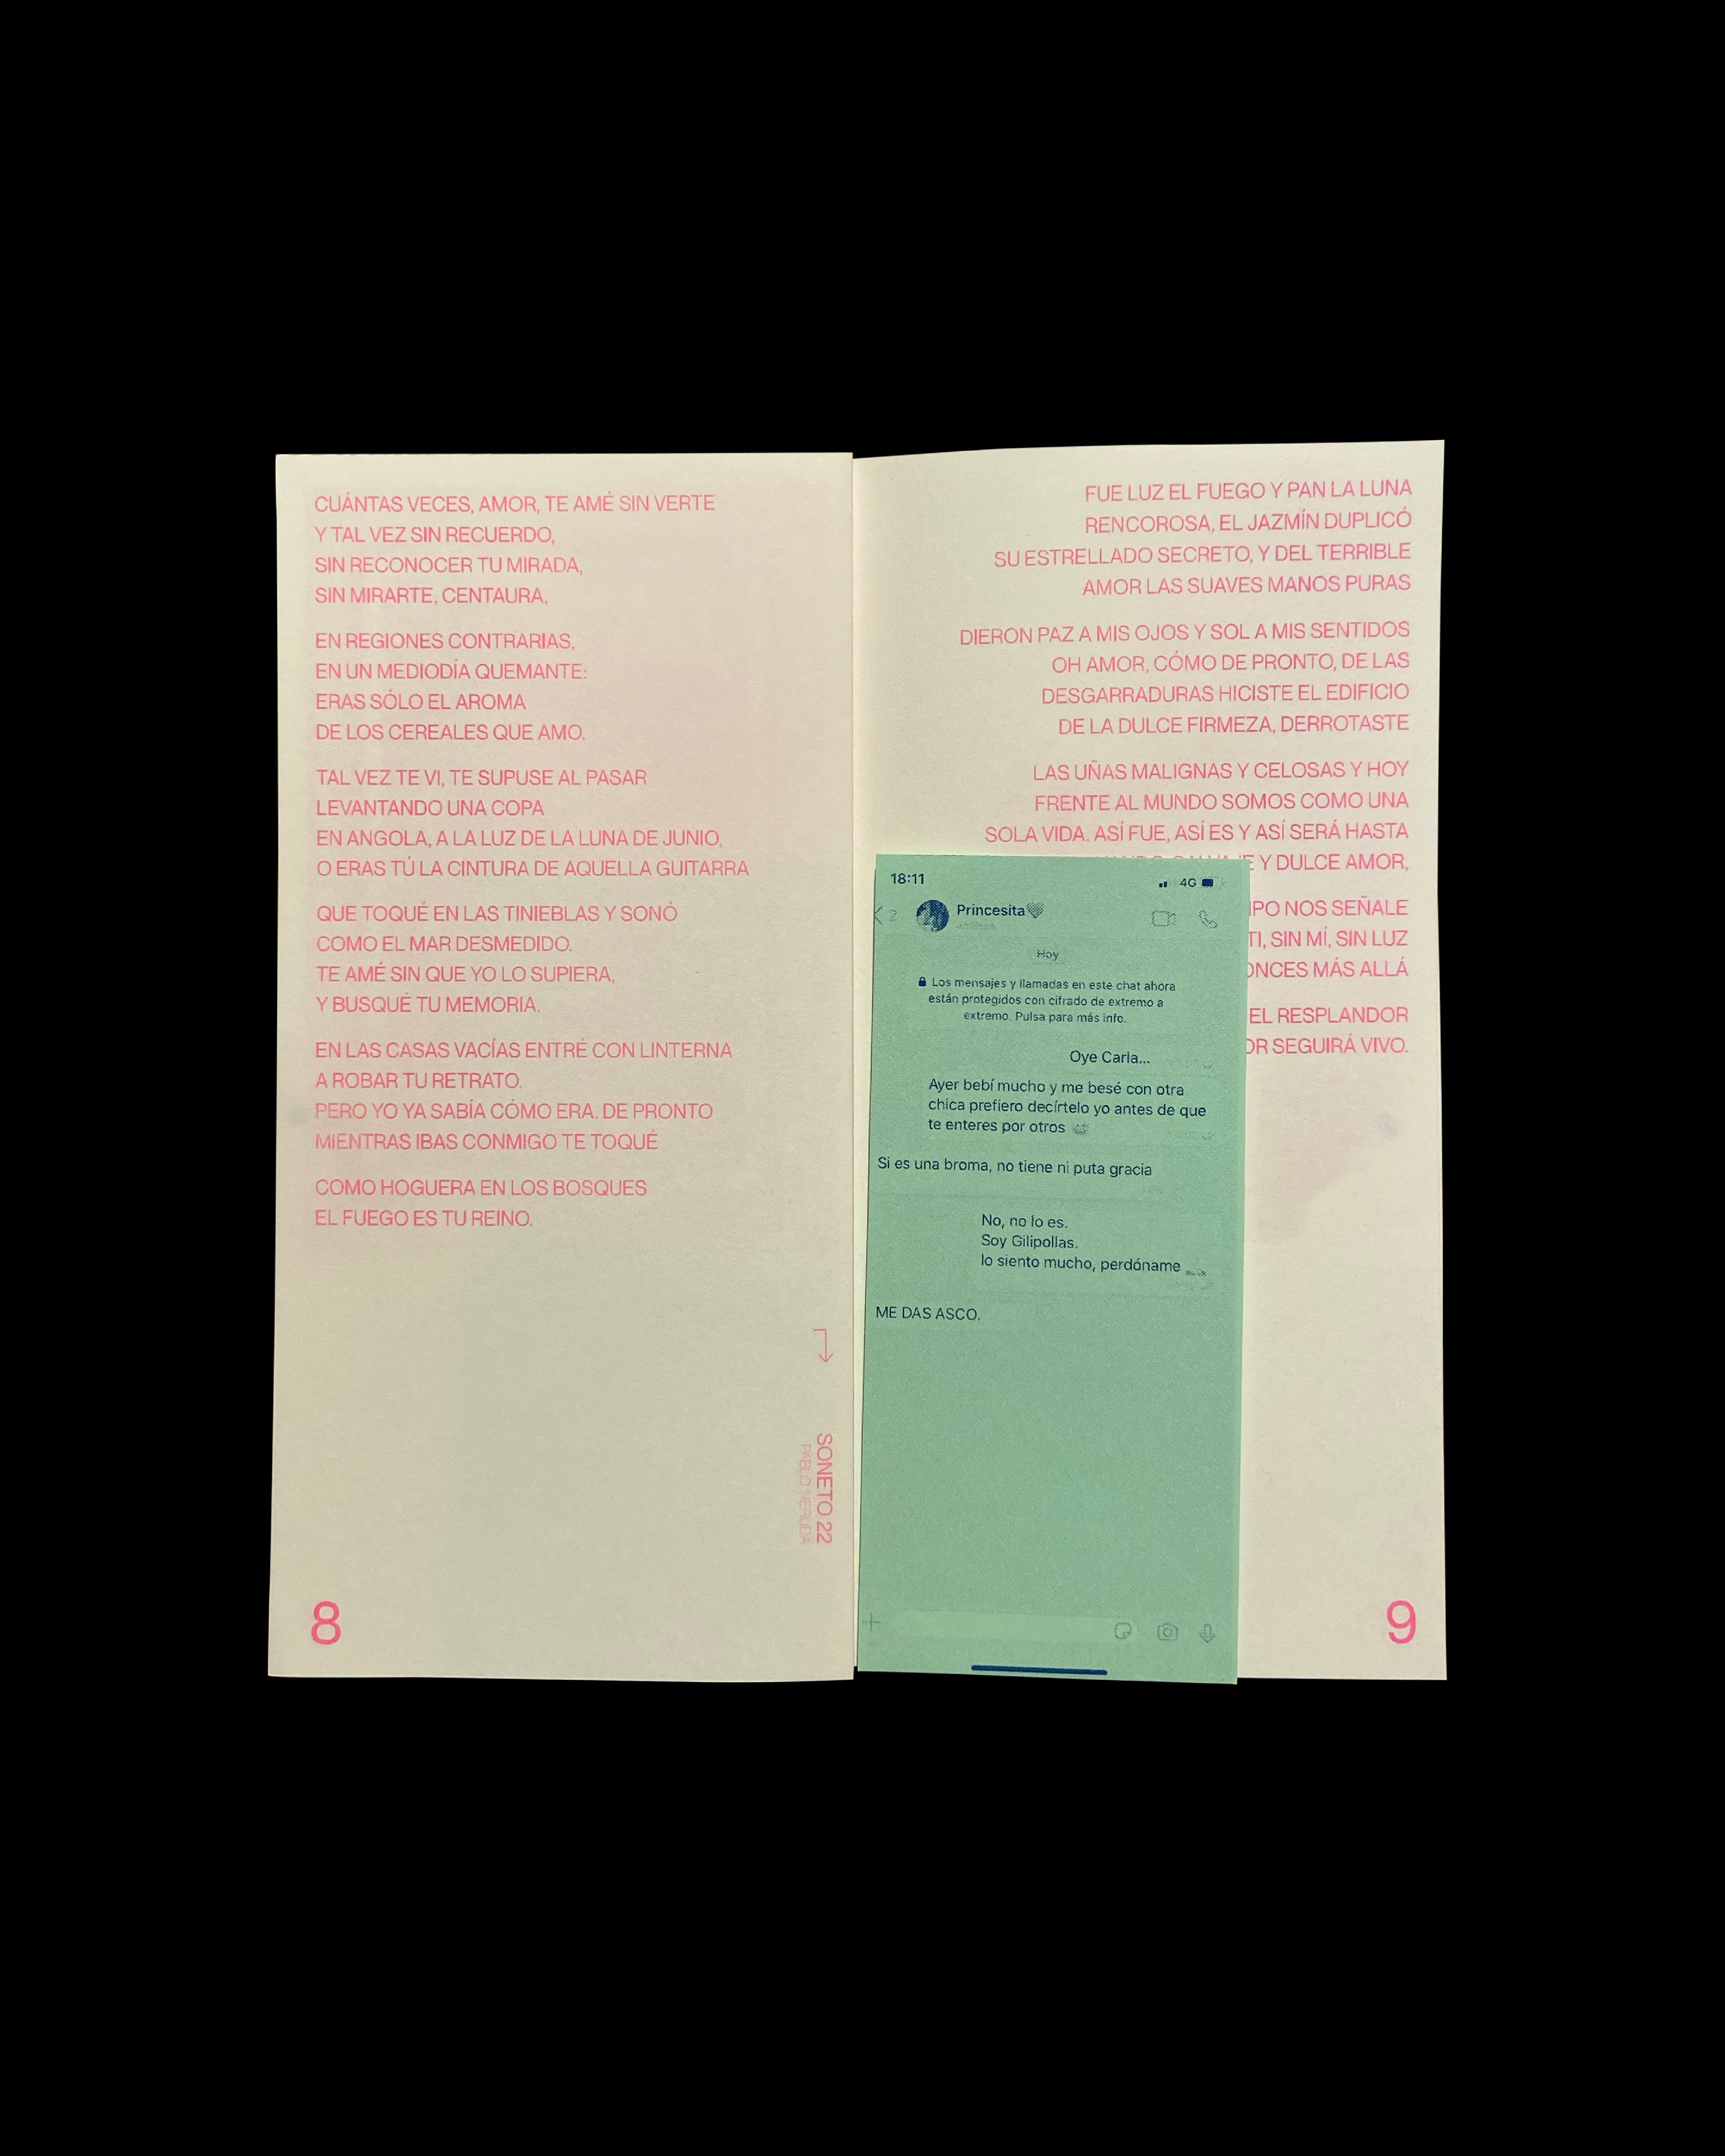 CUÁNTAS VECES, AMOR, TE AMÉ SIN VERTE
Y TAL VEZ SIN RECUERDO,
SIN RECONOCER TU MIRADA,
SIN MIRARTE, CENTAURA,
EN REGIONES CONTRARIAS,
EN UN MEDIODÍA QUEMANTE:
ERAS SÓLO EL AROMA
DE LOS CEREALES QUE AMO.
TAL VEZ TE VI, TE SUPUSE AL PASAR
LEVANTANDO UNA COPA
EN ANGOLA, A LA LUZ DE LA LUNA DE JUNIO,
O ERAS TÚ LA CINTURA DE AQUELLA GUITARRA
QUE TOQUÉ EN LAS TINIEBLAS Y SONÓ
COMO EL MAR DESMEDIDO.
TE AMÉ SIN QUE YO LO SUPIERA,
Y BUSQUÉ TU MEMORIA.
EN LAS CASAS VACÍAS ENTRÉ CON LINTERNA
A ROBAR TU RETRATO.
PERO YO YA SABÍA CÓMO ERA. DE PRONTO
MIENTRAS IBAS CONMIGO TE TOQUÉ
COMO HOGUERA EN LOS BOSQUES
EL FUEGO ES TU REINO.
SONETO 22
PABLO NERUDA
8
FUE LUZ EL FUEGO Y PAN LA LUNA
RENCOROSA, EL JAZMÍN DUPLICÓ
SU ESTRELLADO SECRETO, Y DEL TERRIBLE
AMOR LAS SUAVES MANOS PURAS
DIERON PAZ A MIS OJOS Y SOL A MIS SENTIDOS
OH AMOR, CÓMO DE PRONTO, DE LAS
DESGARRADURAS HICISTE EL EDIFICIO
DE LA DULCE FIRMEZA, DERROTASTE
LAS UÑAS MALIGNAS Y CELOSAS Y HOY
FRENTE AL MUNDO SOMOS COMO UNA
SOLA VIDA. ASÍ FUE, ASÍ ES Y ASÍ SERÁ HASTA
Y DULCE AMOR,
NOS SEÑALE
TI, SIN MÍ, SIN LUZ
MÁS ALLÁ
EL RESPLANDOR
SEGUIRÁ VIVO.
18:11
4G
2
Princesita
Hoy
Los mensajes y llamadas en este chat ahora
están protegidos con cifrado de extremo a
extremo. Pulsa para más info.
Oye Carla...
Ayer bebí mucho y me besé con otra
chica prefiero decírtelo yo antes de que
te enteres por otros
Si es una broma, no tiene ni puta gracia
No, no lo es.
Soy Gilipollas.
lo siento mucho, perdóname
ME DAS ASCO.
9